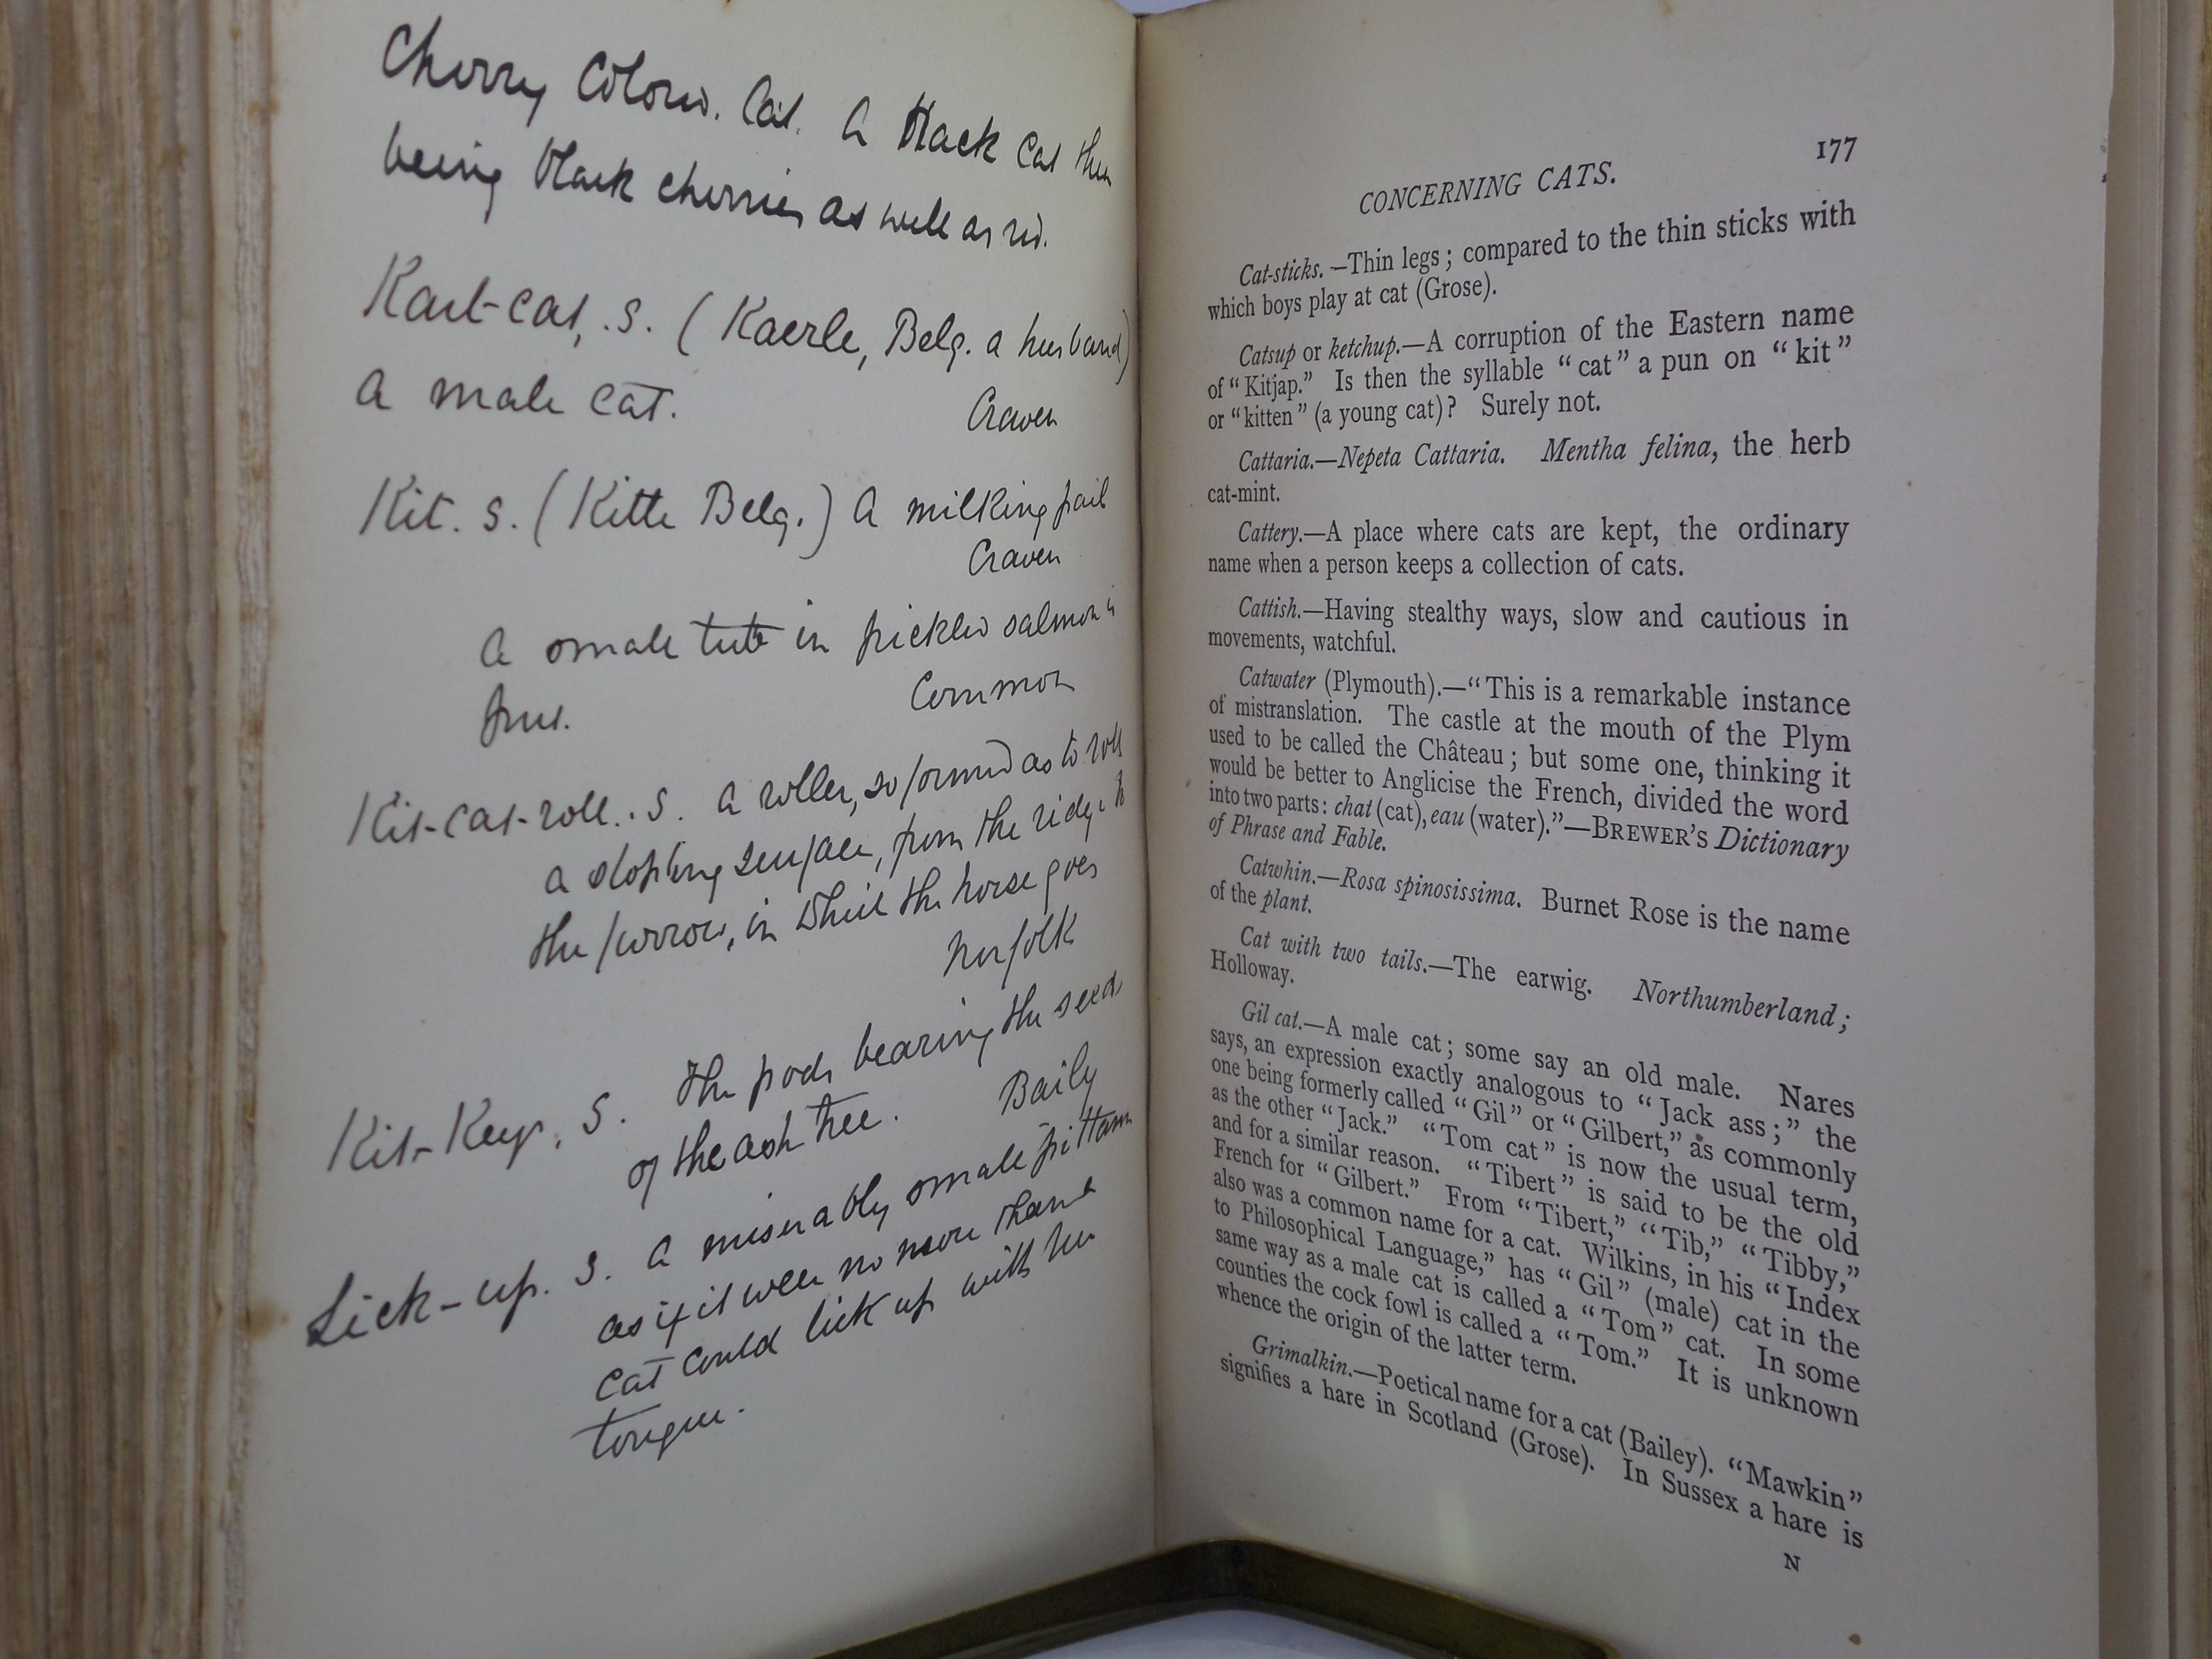 Cherry Colour. Cat. A black Cat then
being black cherries as well as red.
Karl-cat, s. (Kaerle, Belg. a husband)
A male cat.
Craven
Kit. s. (Kitte Belg.) A milking pail
Craven
A small tub in pickled salmon is
put.
Common
Kit-cat-roll. s. A roller, so formed as to roll
a slopling surface, from the ridge to
the furrow, in which the horse goes
Norfolk
Kit-Keys, s. The pods bearing the seed
of the ash tree.
Baily
Lick-up. s. A miserably small pittance
as if it were no more than a
cat could lick up with her
tongue.
177
CONCERNING CATS.
Cat-sticks.—Thin legs; compared to the thin sticks with
which boys play at cat (Grose).
Catsup or ketchup.—A corruption of the Eastern name
of “Kitjap.” Is then the syllable “cat” a pun on “kit”
or “kitten” (a young cat)? Surely not.
Cattaria.—Nepeta Cattaria. Mentha felina, the herb
cat-mint.
Cattery.—A place where cats are kept, the ordinary
name when a person keeps a collection of cats.
Cattish.—Having stealthy ways, slow and cautious in
movements, watchful.
Catwater (Plymouth).—“This is a remarkable instance
of mistranslation. The castle at the mouth of the Plym
used to be called the Château; but some one, thinking it
would be better to Anglicise the French, divided the word
into two parts: chat (cat), eau (water).”—BREWER’S Dictionary
of Phrase and Fable.
Catwhin.—Rosa spinosissima. Burnet Rose is the name
of the plant.
Cat with two tails.—The earwig. Northumberland;
Holloway.
Gil cat.—A male cat; some say an old male. Nares
says, an expression exactly analogous to “Jack ass;” the
one being formerly called “Gil” or “Gilbert,” as commonly
as the other “Jack.” “Tom cat” is now the usual term,
and for a similar reason. “Tibert” is said to be the old
French for “Gilbert.” From “Tibert,” “Tib,” “Tibby,”
also was a common name for a cat. Wilkins, in his “Index
to Philosophical Language,” has “Gil” (male) cat in the
same way as a male cat is called a “Tom” cat. In some
counties the cock fowl is called a “Tom.” It is unknown
whence the origin of the latter term.
Grimalkin.—Poetical name for a cat (Bailey). “Mawkin”
signifies a hare in Scotland (Grose). In Sussex a hare is
N